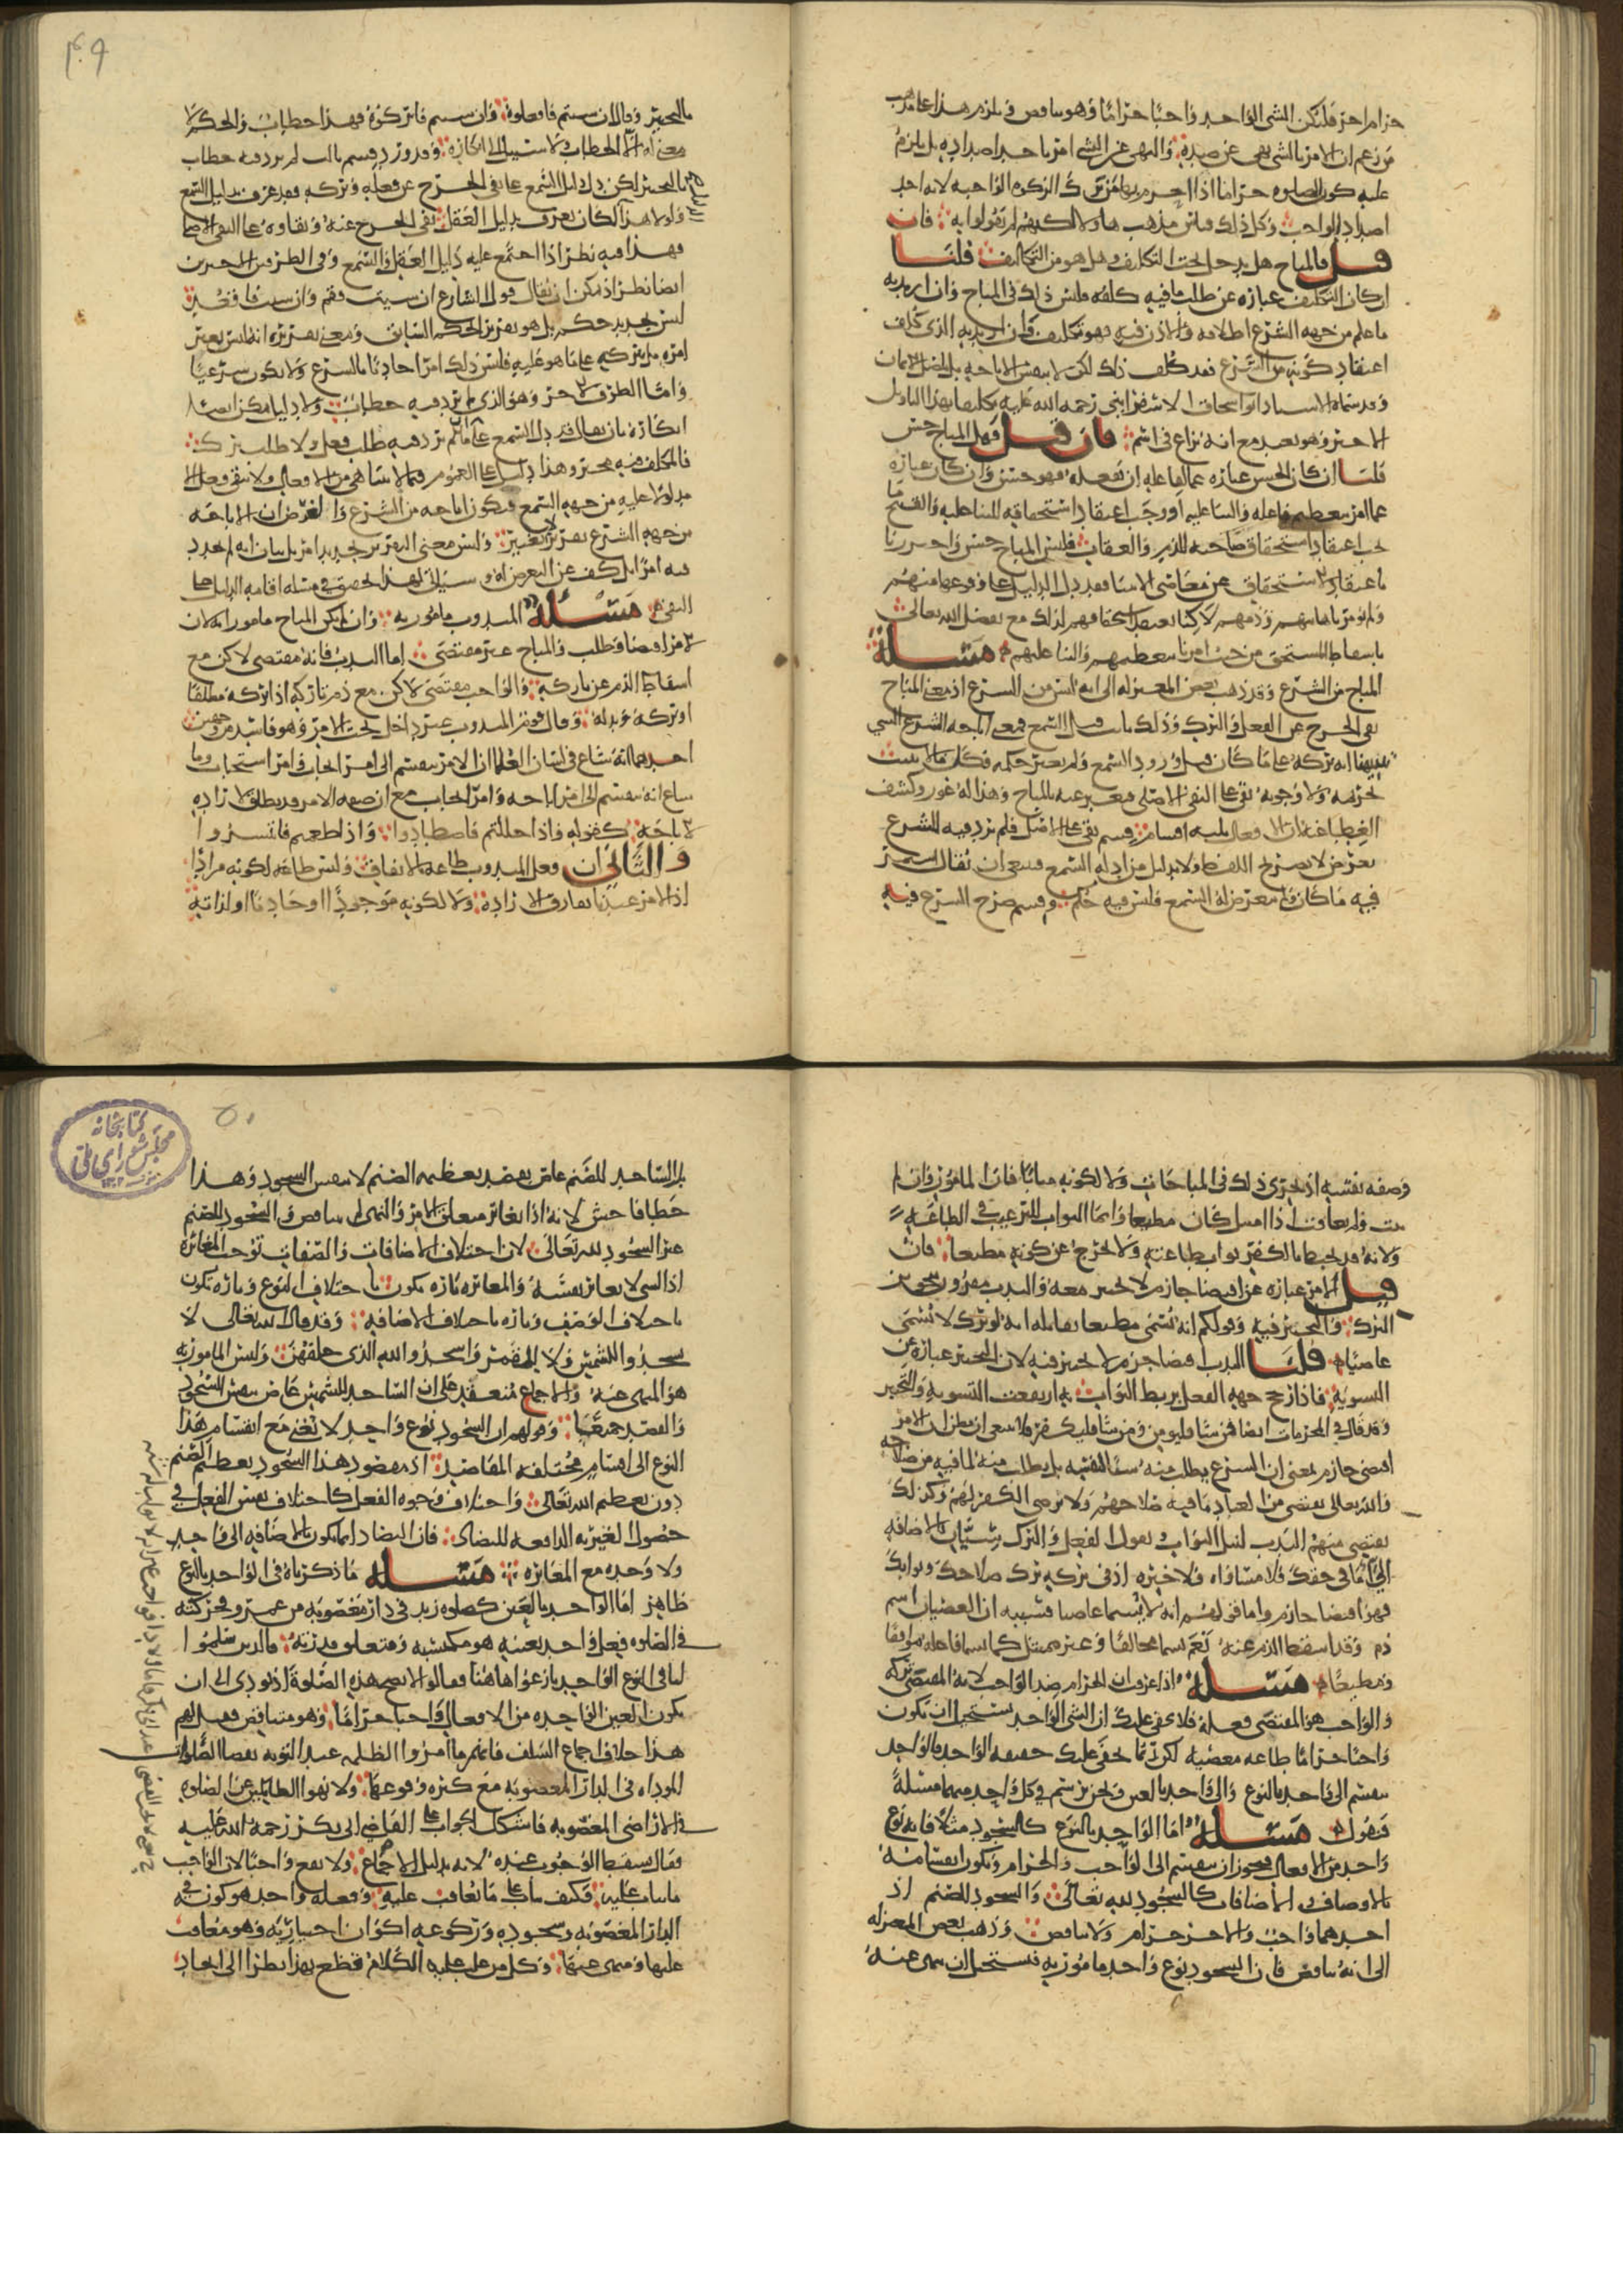 حرام آخر فليكن الشي الواحد واجبا حراما وهو تناقض فيلزم هذا على مذهب
من زعم ان الامر بالشي نهي عن ضده والنهي عن الشي امر باحد اضداده بل يلزم
عليه كون الصلوة حراما اذا تحرم بها من ترك الزكوة الواجبة لانه احد
اضداد الواجب وكل ذلك قياس مذهب هاولا لكنهم لم يقولوا به فان
قيل فالمباح هل يدخل تحت التكليف وهل هو من التكاليف قلنا
ان كان التكليف عبارة عن طلب ما فيه كلفة فليس ذلك في المباح وان اريد به
ما علم من جهة الشرع اطلاقه والاذن فيه فهو تكليف وان اريد به الذي كلف
اعتقاد كونه من الشرع فقد كلف ذلك لكن لا بنفس الاباحة بل باصل الايمان
وقد سماه الاستاد ابو اسحاق الاسفرايني رحمه الله عليه تكليفا بهذا التاويل
الاخير وهو بعيد مع انه نزاع في اسم فان قيل فهل المباح حسن
قلنا ان كان الحسن عبارة عما لفاعله ان يفعله فهو حسن وان كان عبارة
عما امر بتعظيم فاعله والثنا عليه او وجب اعتقاد استحقاقه للثنا عليه والقبيح ما
يجب اعتقاد استحقاق صاحبه للذم والعقاب فليس المباح حسن واحترزنا
باعتقاد الاستحقاق عن معاصي الانبيا فقد دل الدليل على وقوعها منهم
ولم يؤمر باهانتهم وذمهم لاكنا نعتقد استحقاقهم لذلك مع تفضل الله تعالى
باسقاط المستحق من حيث امرنا بتعظيمهم والثنا عليهم مسئلة
المباح من الشرع وقد ذهب بعض المعتزلة الى انه ليس من الشرع اذ معنى المباح
نفي الحرج عن الفعل والترك وذلك ثابت قبل السمع فمعنى اباحة الشرع الشي
تنبيهنا انه تركه على ما كان قبل ورود السمع ولم يغير حكمه فكل ما لم يثبت
تحريمه ولا وجوبه بقي على النفي الاصلي فعبر عنه بالمباح وهذا له غور وكشف
الغطا عنه ان الافعال ثلثة اقسام قسم بقي على الاصل فلم يرد فيه للشرع
تعرض لا بصريح اللفظ ولا بدليل من ادلة السمع فينبغي ان يقال استمر
فيه ما كان ولم يتعرض له السمع فليس فيه حكم وقسم صرح الشرع فيه
٤٩
بالتخيير وقال ان شيتم فافعلوه وان شيتم فاتركوه فهذا خطاب والحكم لا
معنى له الا الخطاب ولا سبيل الى انكاره وقد ورد وقسم ثالث لم يرد فيه خطاب
بالتخيير لكن دل دليل السمع على نفي الحرج عن فعله وتركه فقد عرف بدليل السمع
ولولا هذا لكان يعرف بدليل العقل نفي الحرج عنه وبقاوه على النفي الاصلي
فهذا فيه نظر اذا اجتمع عليه دليل العقل والسمع وفي الطرفين الاخيرين
ايضا نظر اذ يمكن ان يقال قول الشارع ان شيت فقم وان شيت فاقعد
ليس بتجديد حكم بل هو تقرير للحكم السابق ومعنى تقريره انه ليس يغير
امره بل يتركه على ما هو عليه فليس ذلك امرا حادثا بالشرع ولا يكون شرعيا
واما الطرف الاخر وهو الذي لم يرد فيه خطاب ولا دليل فيمكن ايضا
انكاره بان يقال قد دل السمع على ان ما لم يرد فيه طلب فعل ولا طلب ترك
فالمكلف فيه مخير وهذا دليل على العموم فيما لا يتناهى من الافعال ولا يبقى فعل الا
مدلولا عليه من جهة السمع فيكون اباحته من الشرع والغرض ان الاباحة
من جهة الشرع تقرير لا تغيير وليس معنى التقرير تجديد امر بل بيان انه لم يحدث
فيه امرا بل كف عن التعرض له وسياتي لهذا تحقيق في مسئلة اقامة الدليل على
النفي مسئلة المندوب مامور به وان لم يكن المباح مامورا به لان
الامر اقتضا وطلب والمباح غير مقتضى اما الندب فانه مقتضى لاكن مع
اسقاط الذم عن تاركه والواجب مقتضى لاكن مع ذم تاركه اذا تركه مطلقا
او تركه وبدله وقال قوم المندوب غير داخل تحت الامر وهو فاسد من وجهين
احدهما انه شاع في لسان العلما ان الامر ينقسم الى امر ايجاب وامر استحباب وما
شاع انه ينقسم الى امر اباحة وامر ايجاب مع ان صيغة الامر قد تطلق لارادة
الاباحة كقوله واذا حللتم فاصطادوا واذا طعمتم فانتشروا
والثاني ان فعل المندوب طاعة بالاتفاق وليس طاعة لكونه مرادا
اذ الامر عندنا يفارق الارادة ولا لكونه موجودا او حادثا او لذاته
وصفة نفسه اذ يجري ذلك في المباحات ولا لكونه مثابا فان المامور وان لم
يثب ولم يعاقب اذا امتثل كان مطيعا وانما الثواب للترغيب في الطاعة
ولانه قد يحبط بالكفر ثواب طاعته ولا يخرج عن كونه مطيعا فان
قيل الامر عبارة عن اقتضا جازم لا تخيير معه والندب مقرون بتجويز
الترك والتخيير فيه وقولكم انه يسمى مطيعا يقابله انه لو ترك لا يسمى
عاصيا قلنا الندب اقتضا جزم لا تخيير فيه لان التخيير عبارة عن
التسوية فاذا رجح جهة الفعل بربط الثواب به ارتفعت التسوية والتخيير
وقد قال في المحرمات ايضا فمن شا فليومن ومن شا فليكفر فلا ينبغي ان يظن ان الامر
اقتضى جازم بمعنى ان الشرع يطلب منه شيئا لنفسه بل يطلب منه لما فيه من صلاحه
والله تعالى يقتضي من العباد ما فيه صلاحهم ولا يرضى الكفر لهم وكذلك
يقتضي منهم الندب لنيل الثواب ويقول الفعل والترك سيان بالاضافة
الي اما في حقك فلا مساواة ولا خيرة اذ في تركه ترك صلاحك وثوابك
فهو اقتضا جازم واما قولهم انه لا يسما عاصيا فسببه ان العصيان اسم
ذم وقد اسقط الذم عنه نعم يسما مخالفا وغير ممتثل كما يسما فاعله موافقا
ومطيعا مسئلة اذا عرفت ان الحرام ضد الواجب لانه المقتضى تركه
والواجب هو المقتضى فعله فلا يخفى عليك ان الشي الواحد يستحيل ان يكون
واجبا حراما طاعة معصية لكن ربما تخفى عليك حقيقة الواحد فالواحد
ينقسم الى واحد بالنوع والى واحد بالعين ونحن نرسم في كل واحد منهما مسئلة
فنقول مسئلة اما الواحد بالنوع كالسجود مثلا فانه نوع
واحد من الافعال فيجوز ان ينقسم الى الواجب والحرام ويكون انقسامه
بالاوصاف والاضافات كالسجود لله تعالى والسجود للصنم اذ
احدهما واجب والاخر حرام ولا تناقض وذهب بعض المعتزلة
الى انه تناقض فان السجود نوع واحد مامور به فيستحيل ان ينهى عنه
٥٠
كتابخانه
مجلس شوراي ملي
بل الساجد للصنم عاص بقصد تعظيمه الصنم لا بنفس السجود وهذا
خطا فاحش لانه اذا تغاير متعلق الامر والنهي لم يتناقض والسجود للصنم
غير السجود لله تعالى لان اختلاف الاضافات والصفات توجب المغايرة
اذ الشي لا يغاير نفسه والمغايرة تارة تكون باختلاف النوع وتارة تكون
باختلاف الوصف وتارة باختلاف الاضافة وقد قال الله تعالى لا
تسجدوا للشمس ولا للقمر واسجدوا لله الذي خلقهن وليس المامور به
هو المنهي عنه والاجماع منعقد على ان الساجد للشمس عاص بنفس السجود
والقصد جميعا وقولهم ان السجود نوع واحد لا يغني مع انقسام هذا
النوع الى اقسام مختلفة المقاصد اذ مقصود هذا السجود تعظيم الصنم
دون تعظيم الله تعالى واختلاف وجوه الفعل كاختلاف نفس الفعل في
حصول الغيرية الدافعة للتضاد فان التضاد انما يكون بالاضافة الى واحد
ولا وحدة مع المغايرة مسئلة ما ذكرناه في الواحد بالنوع
ظاهر اما الواحد بالعين كصلوة زيد في دار مغصوبة من عمرو فحركته
في الصلوة فعل واحد بعينه هو مكتسبه ومتعلق قدرته فالذين سلموا
لنا في النوع الواحد نازعوا هاهنا فقالوا لا تصح هذه الصلوة اذ يودي الى ان
تكون العين الواحدة من الافعال واجبا حراما وهو متناقض فقيل لهم
هذا خلاف اجماع السلف فانهم ما امروا الظلمة عند التوبة بقضا الصلوات
المؤداة في الدار المغصوبة مع كثرة وقوعها ولا نهوا الظالمين عن الصلوة
في الاراضي المغصوبة فاشكل الجواب على القاضي ابي بكر رحمة الله عليه
فقال يسقط الوجوب عنده لا به بدليل الاجماع ولا يقع واجبا لان الواجب
ما يثاب عليه فكيف يثاب على ما يعاقب عليه وفعله واحد هو كون في
الدار المغصوبة وسجوده وركوعه اكوان اختيارية وهو معاقب
عليها ومنهي عنها وكل من غلب عليه الكلام قطع بهذا نظرا الى اتحاد